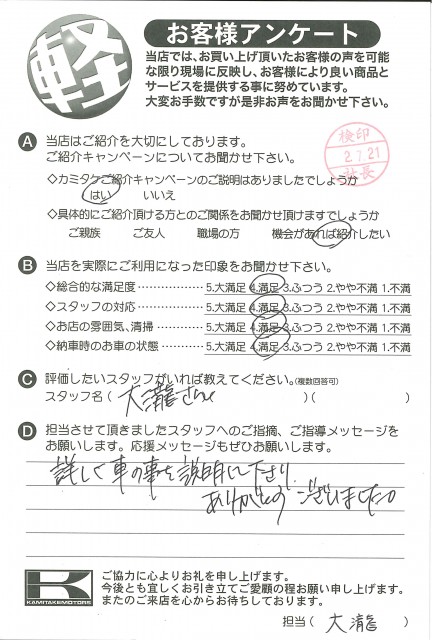 軽
お客様アンケート
当店では、お買い上げ頂いたお客様の声を可能
な限り現場に反映し、お客様により良い商品と
サービスを提供する事に努めています。
大変お手数ですが是非お声をお聞かせ下さい。
A 当店はご紹介を大切にしております。
ご紹介キャンペーンについてお聞かせ下さい。
検印
2.7.21
社長
◇カミタケご紹介キャンペーンのご説明はありましたでしょうか
はい いいえ
◇具体的にご紹介頂ける方とのご関係をお聞かせ頂けますでしょうか
ご親族 ご友人 職場の方 機会があれば紹介したい
B 当店を実際にご利用になった印象をお聞かせ下さい。
◇総合的な満足度 5.大満足 4.満足 3.ふつう 2.やや不満 1.不満
◇スタッフの対応 5.大満足 4.満足 3.ふつう 2.やや不満 1.不満
◇お店の雰囲気、清掃 5.大満足 4.満足 3.ふつう 2.やや不満 1.不満
◇納車時のお車の状態 5.大満足 4.満足 3.ふつう 2.やや不満 1.不満
C 評価したいスタッフがいれば教えてください。(複数回答可)
スタッフ名( 大瀧さん )( )
D 担当させて頂きましたスタッフへのご指摘、ご指導メッセージを
お願いします。応援メッセージもぜひお願いします。
詳しく車の事を説明して下さり
ありがとうございました。
K
KAMITAKEMOTORS
ご協力に心よりお礼を申し上げます。
今後とも宜しくお引き立てご愛顧の程お願い申し上げます。
またのご来店を心からお待ちしております。
担当( 大瀧 )